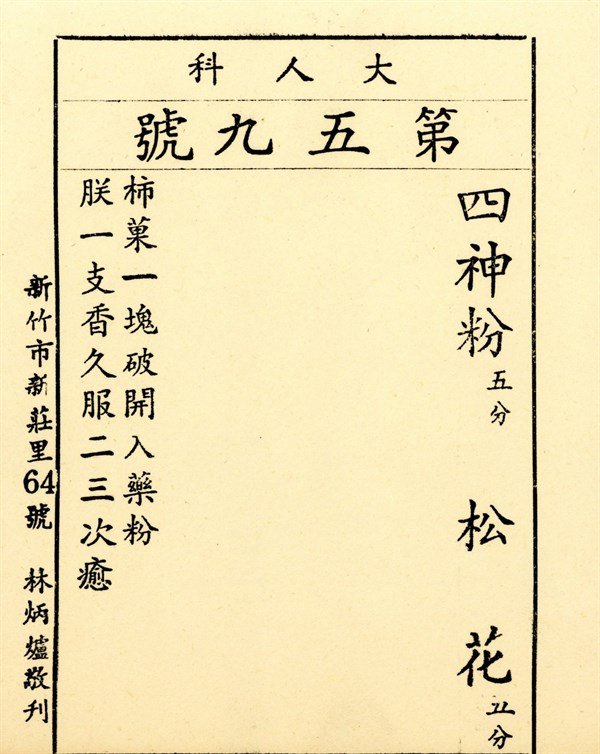 大人科
第五九號
四神粉五分
松花 分
柿菓一塊破開入藥粉
朕一支香久服二三次癒
新竹市新莊里64號 林炳爐敬刊